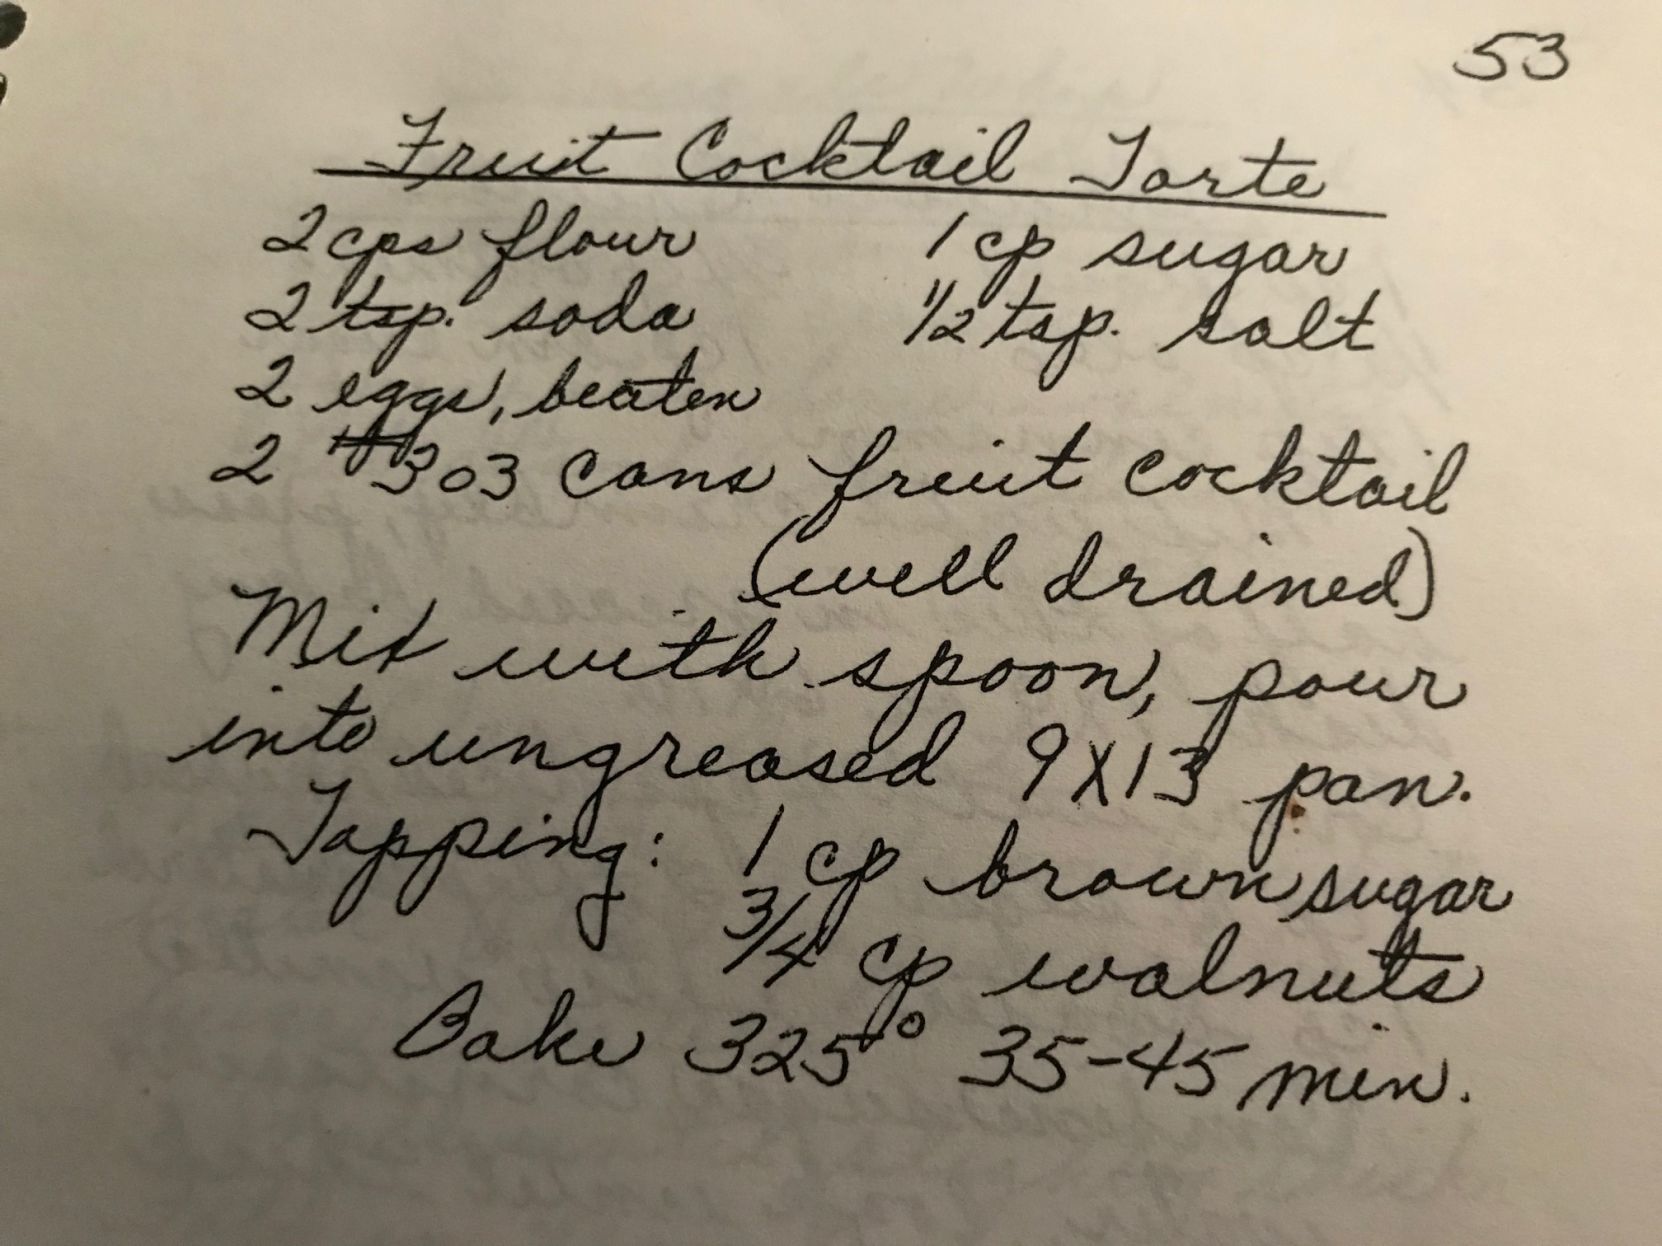 53
Fruit Cocktail Torte
2 cps flour 1 cp sugar
2 tsp. soda 1/2 tsp. salt
2 eggs, beaten
2 #303 cans fruit cocktail
(well drained)
Mix with spoon, pour
into ungreased 9X13 pan.
Topping: 1 cp brown sugar
3/4 cp walnuts
Bake 325° 35-45 min.